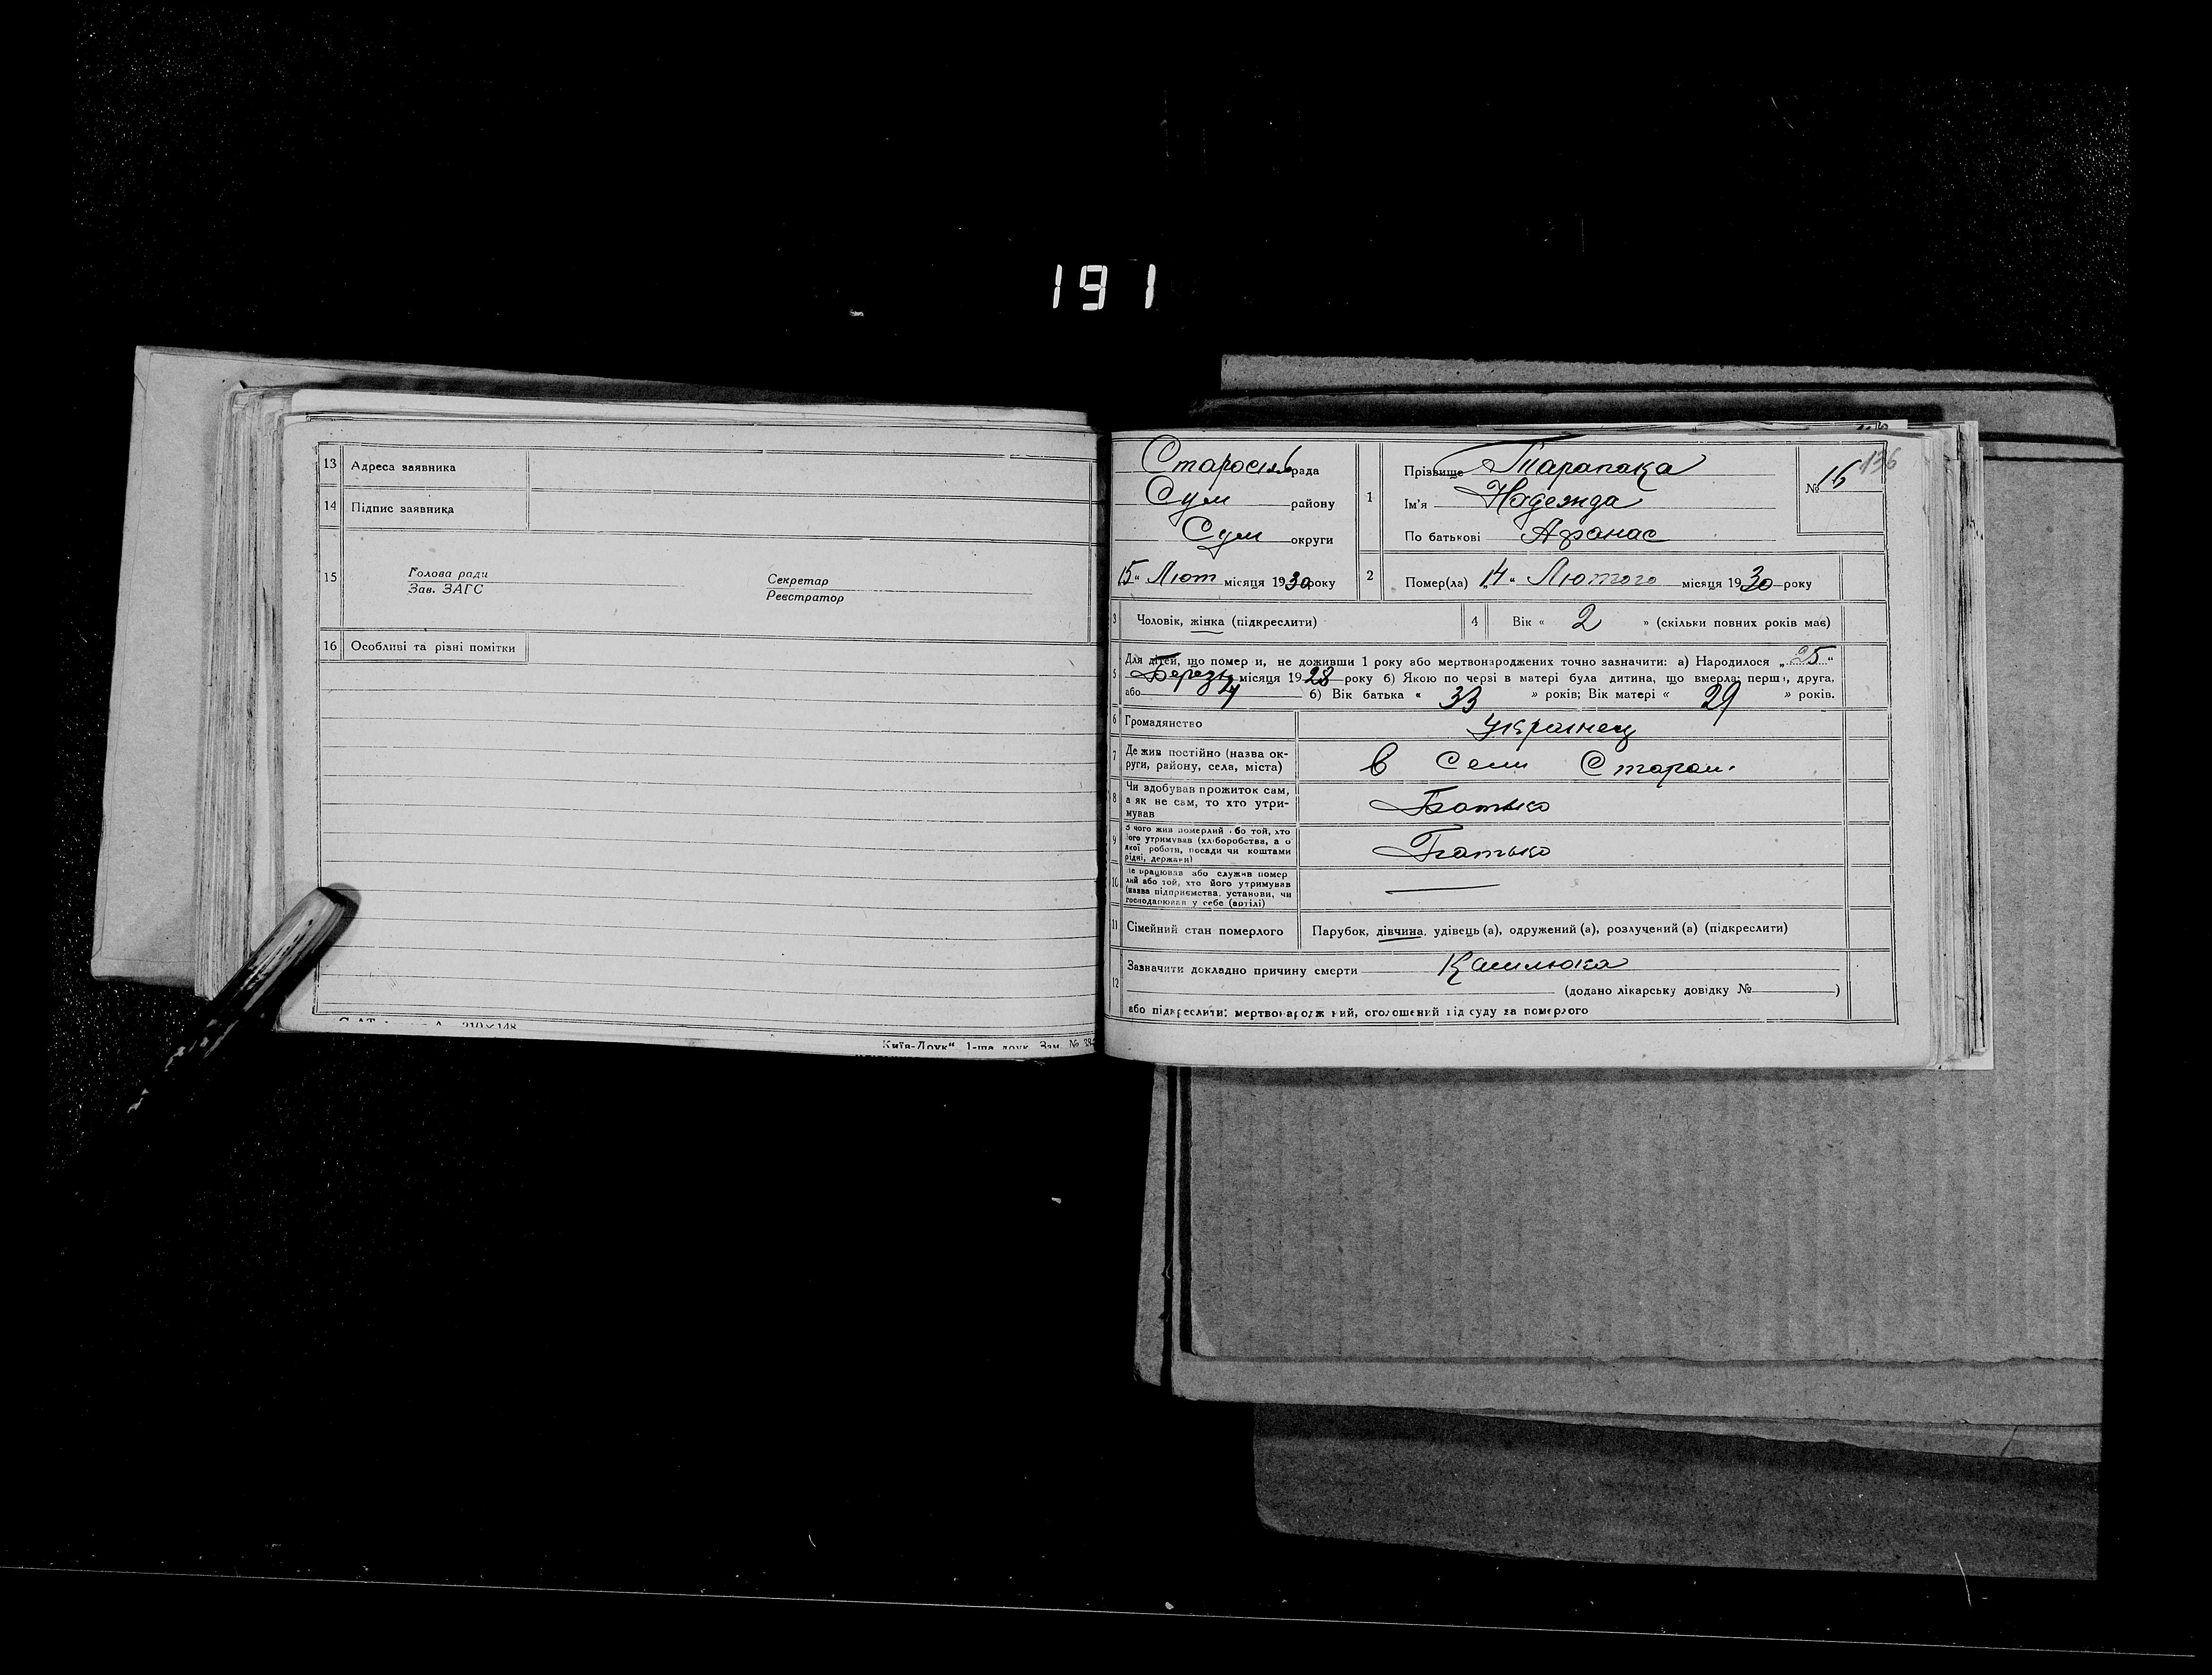 191
13 Адреса заявника
14 Підпис заявника
15 Голова ради
Зав. ЗАГС
Секретар
Реєстратор
16 Особливі та різні помітки
210×148
Київ-Друк" 1-ша друк. Зам. №
Старосілрада
Сум району
Сум округи
15" Лют місяця 1930 року
1 Прізвище Тарапака
Ім'я Надежда
По батькові Афанас
№ 16
136
2 Помер(ла) „14" Лютого місяця 1930 року
3 Чоловік, жінка (підкреслити)
4 Вік « 2 » (скільки повних років має)
5 Для дітей, що померли, не доживши 1 року або мертвонароджених точно зазначити: а) Народилося „25"
Березня місяця 1928 року б) Якою по черзі в матері була дитина, що вмерла: перша, друга,
або 4 б) Вік батька « 33 » років; Вік матері « 29 » років.
6 Громадянство Українец
7 Де жив постійно (назва округи, району, села, міста) в Сели Старом.
8 Чи здобував прожиток сам,
а як не сам, то хто утримував
Батько
9 З чого жив померлий або той, хто
його утримував (хліборобства, а о
якої роботи, посади чи коштами
рідні, держави)
Батько
10 Де працював або служив помер
лий або той, хто його утримував
(назва підприємства, установи, чи
господарював у себе (артілі)
11 Сімейний стан померлого Парубок, дівчина, удівець (а), одружений (а), розлучений (а) (підкреслити)
12 Зазначити докладно причину смерти Кашлюка
(додано лікарську довідку № )
або підкреслити: мертвонароджений, оголошений від суду за померлого